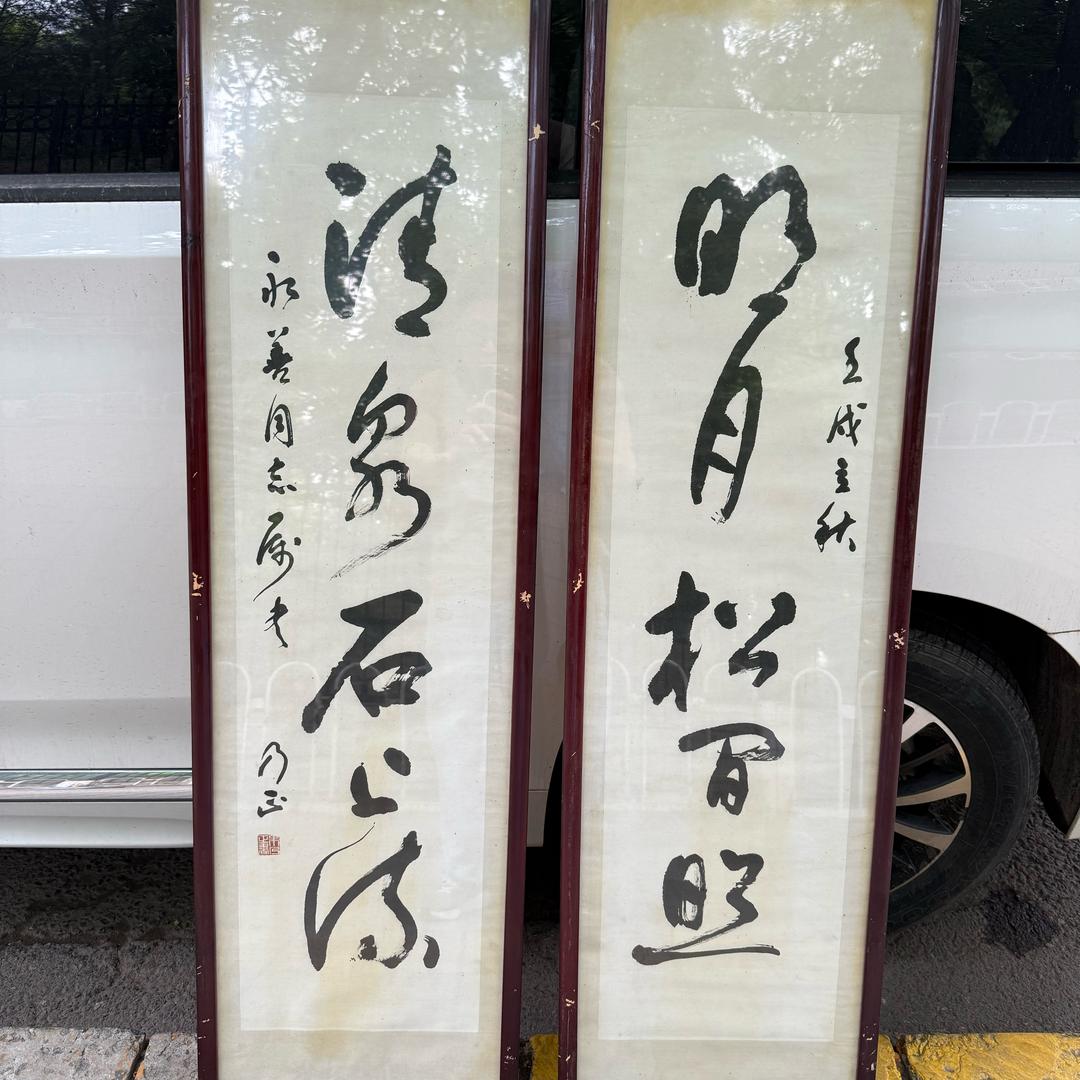 壬戌立秋
明月松间照
清泉石上流
永善同志属书
乃正